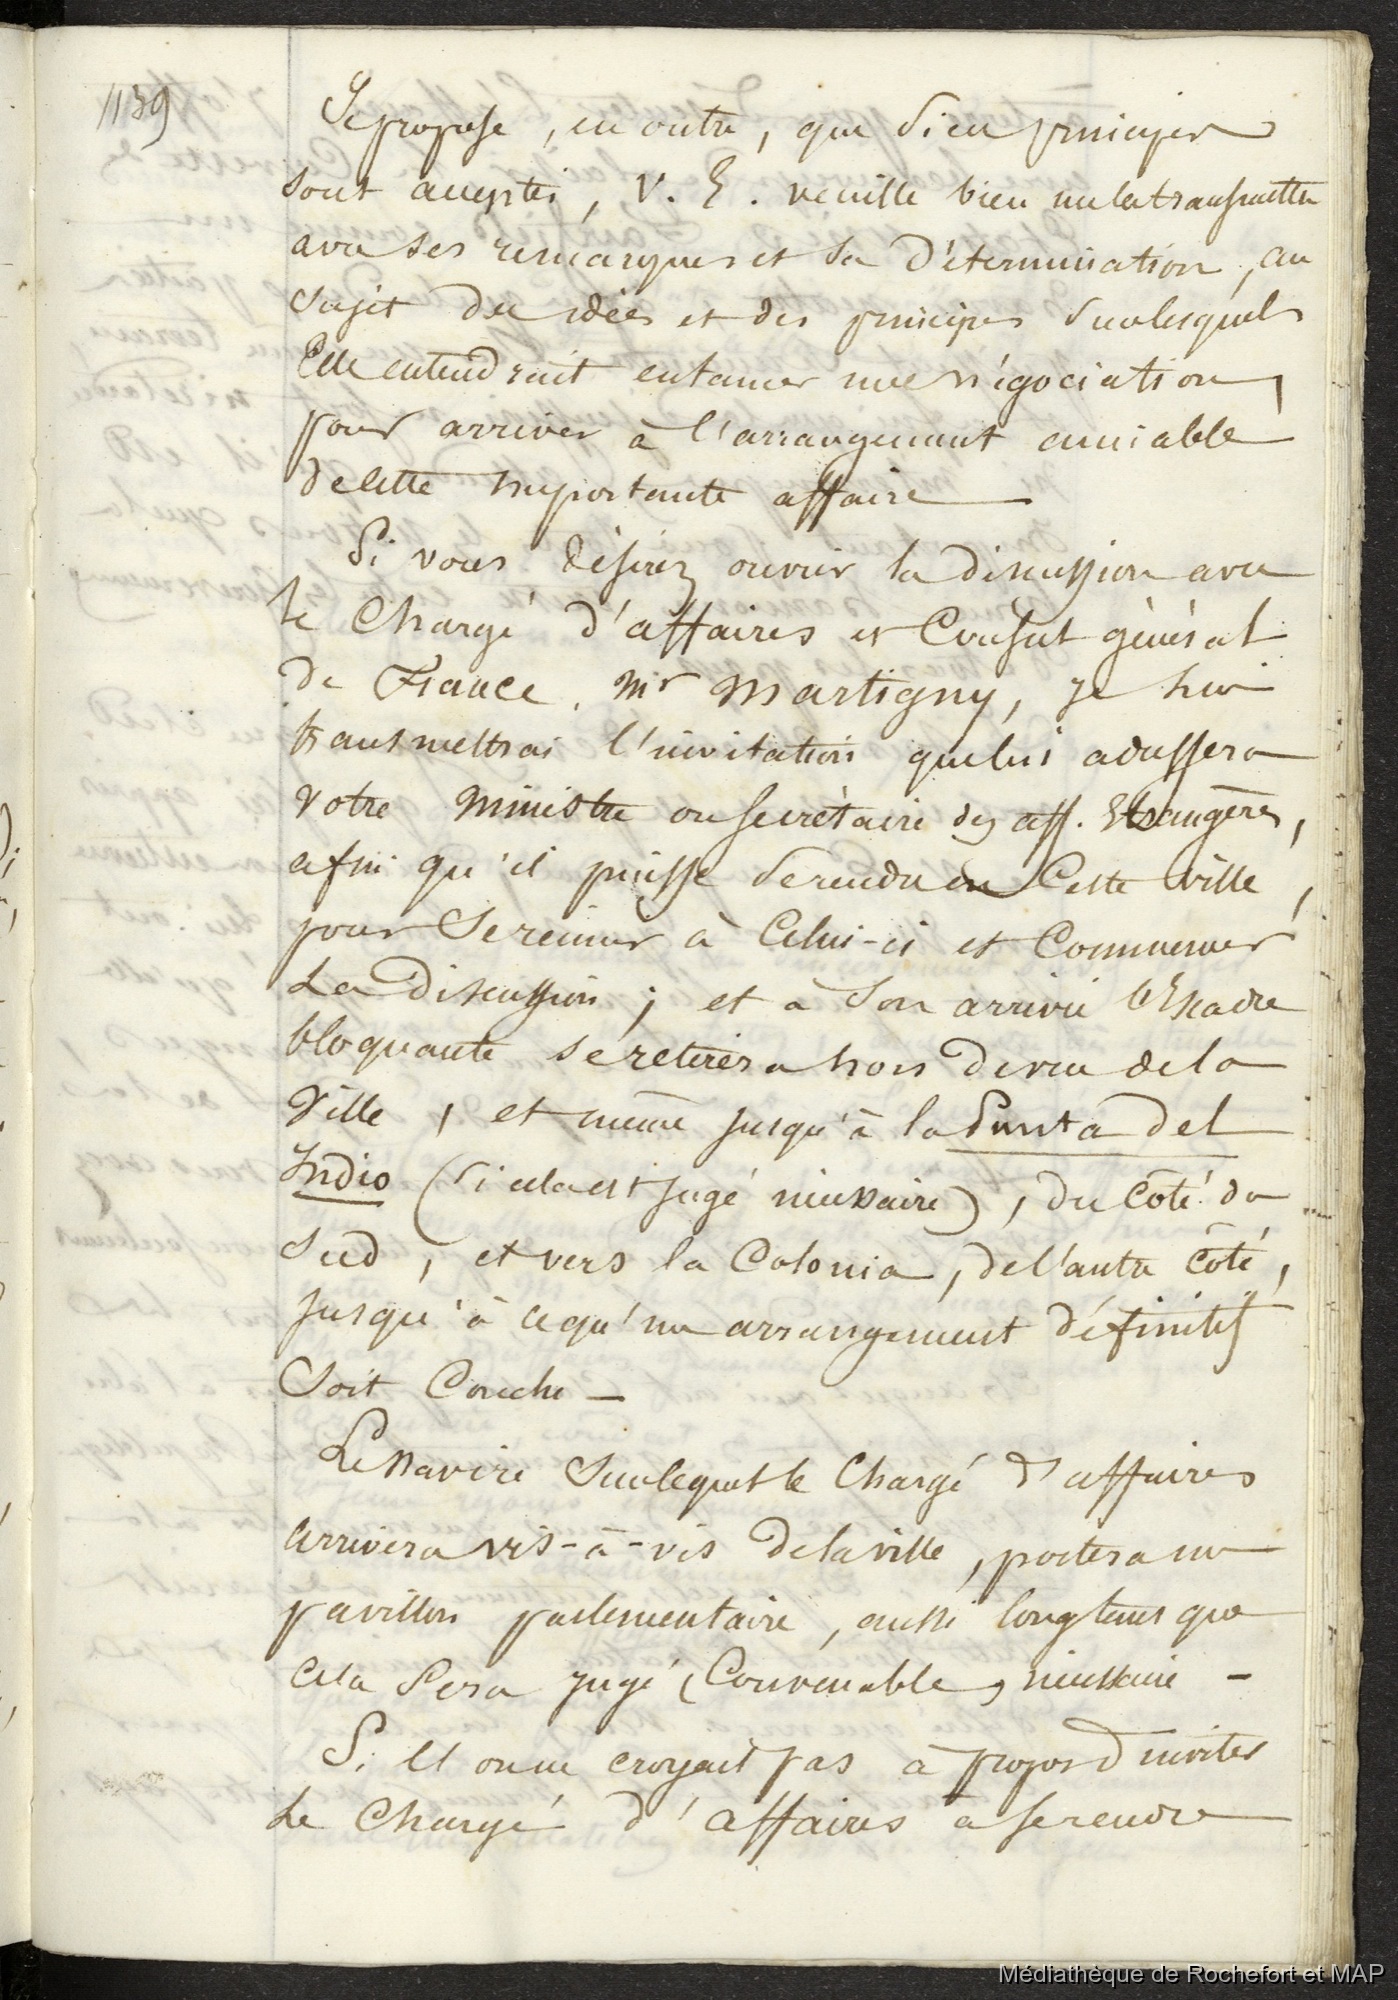 1139
Je propose, en outre, que si ces principes
sont acceptés, V. E. veuille bien me les transmettre
avec ses remarques et sa détermination, au
sujet des idées et des principes sur lesquels
Elle entendrait entamer une négociation,
pour arriver à l'arrangement amiable
de cette importante affaire —
Si vous désirez ouvrir la discussion avec
le Chargé d'affaires et Consul général
de France, Mr Martigny, je lui
transmettrai l'invitation que lui adressera
votre Ministre ou Secrétaire des aff. Etrangères,
afin qu'il puisse se rendre en Cette ville,
pour se réunir à Celui-ci et Commencer
la discussion ; et à son arrivée l'Escadre
bloquante se retirera hors de vue de la
Ville, et même jusqu'à la Punta del
Indio (si cela est jugé nécessaire), du côté du
Sud, et vers la Colonia, de l'autre côté,
jusqu'à ce qu'un arrangement définitif
soit Conclu —
Le Navire sur lequel le Chargé d'affaires
arrivera vis-à-vis de la ville, portera un
pavillon parlementaire, aussi longtems que
cela sera jugé Convenable, nécessaire —
Si l'on ne croyait pas à propos d'inviter
le Chargé d'affaires à se rendre
Médiathèque de Rochefort et MAP